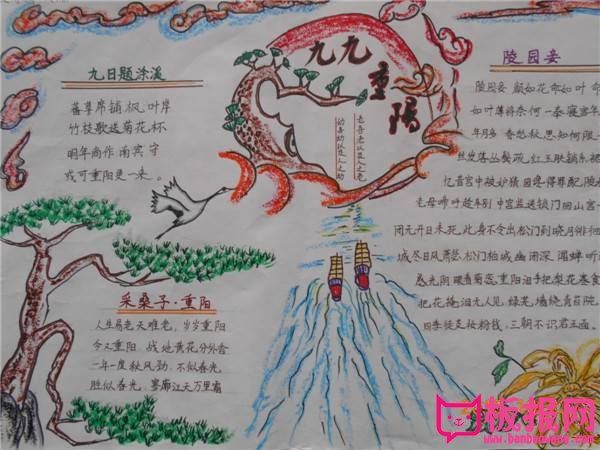 九日题涂溪
蕃草席铺枫叶岸
竹枝歌送菊花杯
明年尚作南宾守
或可重阳更一来。
九九重阳
老吾老以及人之老
采桑子·重阳
人生易老天难老，岁岁重阳
今又重阳 战地黄花分外香
一年一度秋风劲，不似春光。
胜似春光，寥廓江天万里霜
陵园妾
陵园妾 颜如花命如叶 命
如叶薄将奈何一奉寝宫年
年月多 春愁秋思知何限
丝发落丛鬓疏 红玉肤销系裙
忆昔宫中被妒猜 因谗得罪配陵
老母啼呼趁车别 中官监送锁门回山宫
闭九开日未死此身不令出松门到晓月徘徊
城尽日风萧瑟松门柏城幽闭深 闻蝉听
感光阴 眼看菊蕊重阳泪手把梨花寒食
把花掩泪无人见 绿芜墙绕青苔院
四季徒支妆粉钱 三朝不识君王面。
板报网
www.banbaowang.com